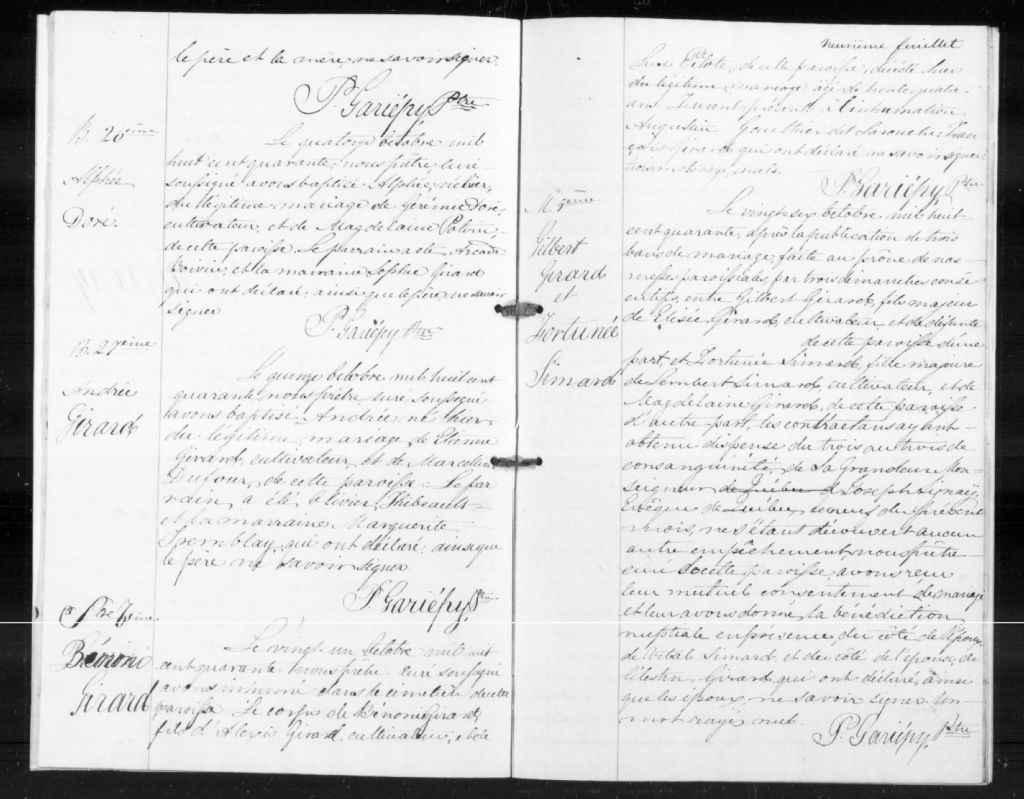 le père et la mère, ne savoir signer.
P. Gariépy Ptre
B. 26ième
Alphée
Doré.
Le quatorze Octobre mil
huit cent quarante, nous prêtre, curé
soussigné avons baptisé Alphée, né hier,
du légitime mariage de Gérémie Doré,
cultivateur, et de Magdelaine Potvin,
de cette paroisse. Le parrain a été
Boivin, et la marraine Sophie Girard
qui ont déclaré, ainsi que le père, ne savoir
signer
P. Gariépy Ptre
B. 27ième
Andrée
Girard
Le quinze Octobre mil huit cent
quarante nous prêtre curé soussigné
avons baptisé Andrée, né hier
du légitime mariage de Etienne
Girard, cultivateur, et de Marceline
Dufour, de cette paroisse. Le par-
rain a été Olivier Thibeault
et la marraine Marguerite
Tremblay, qui ont déclaré, ainsi que
le père ne savoir signer
P. Gariépy Ptre
Sre 7ième
Bémoni
Girard
Le vingt un Octobre mil huit
cent quarante nous prêtre curé soussigné
avons inhumé dans le cimetière de cette
paroisse le corps de Bénoni Girard,
fils d'Alexis Girard, cultivateur, et de
Neuvième feuillet
Luce Pilote, de cette paroisse, décédé hier
du légitime mariage âgé de trente quatre
ans. Furent présents à l'inhumation
Augustin Gauthier dit Larouche, Fran-
çois Girard qui ont déclaré ne savoir signer.
mots rayés nuls.
P. Gariépy Ptre
M. 5ième
Gilbert
Girard
et
Fortunée
Simard
Le vingt six Octobre mil huit-
cent quarante, après la publication de trois
bans de mariage, faite au prône de nos
messes paroissiales, par trois dimanches consé-
cutifs, entre Gilbert Girard, fils majeur
de Elisée Girard, cultivateur, et de défunte
de cette paroisse d'une
part, et Fortunée Simard, fille majeure
de Lembert Simard, cultivateur, et de
Magdelaine Girard, de cette paroisse
d'autre part, les contractans ayant
obtenu dispense du trois au trois de
consanguinité, de Sa Grandeur Mon-
seigneur de Québec Joseph Signay
Evêque de Québec du présent
mois, ne s'étant découvert aucun
autre empêchement, nous prêtre
curé de cette paroisse, avons reçu
leur mutuel consentement de mariage
et leur avons donné la bénédiction
nuptiale en présence, du côté de l'époux,
de Vital Simard, et du côté de l'épouse, de
Célestin Girard, qui ont déclaré, ainsi
que les époux, ne savoir signer. Un
mot rayé nul.
P. Gariépy Ptre